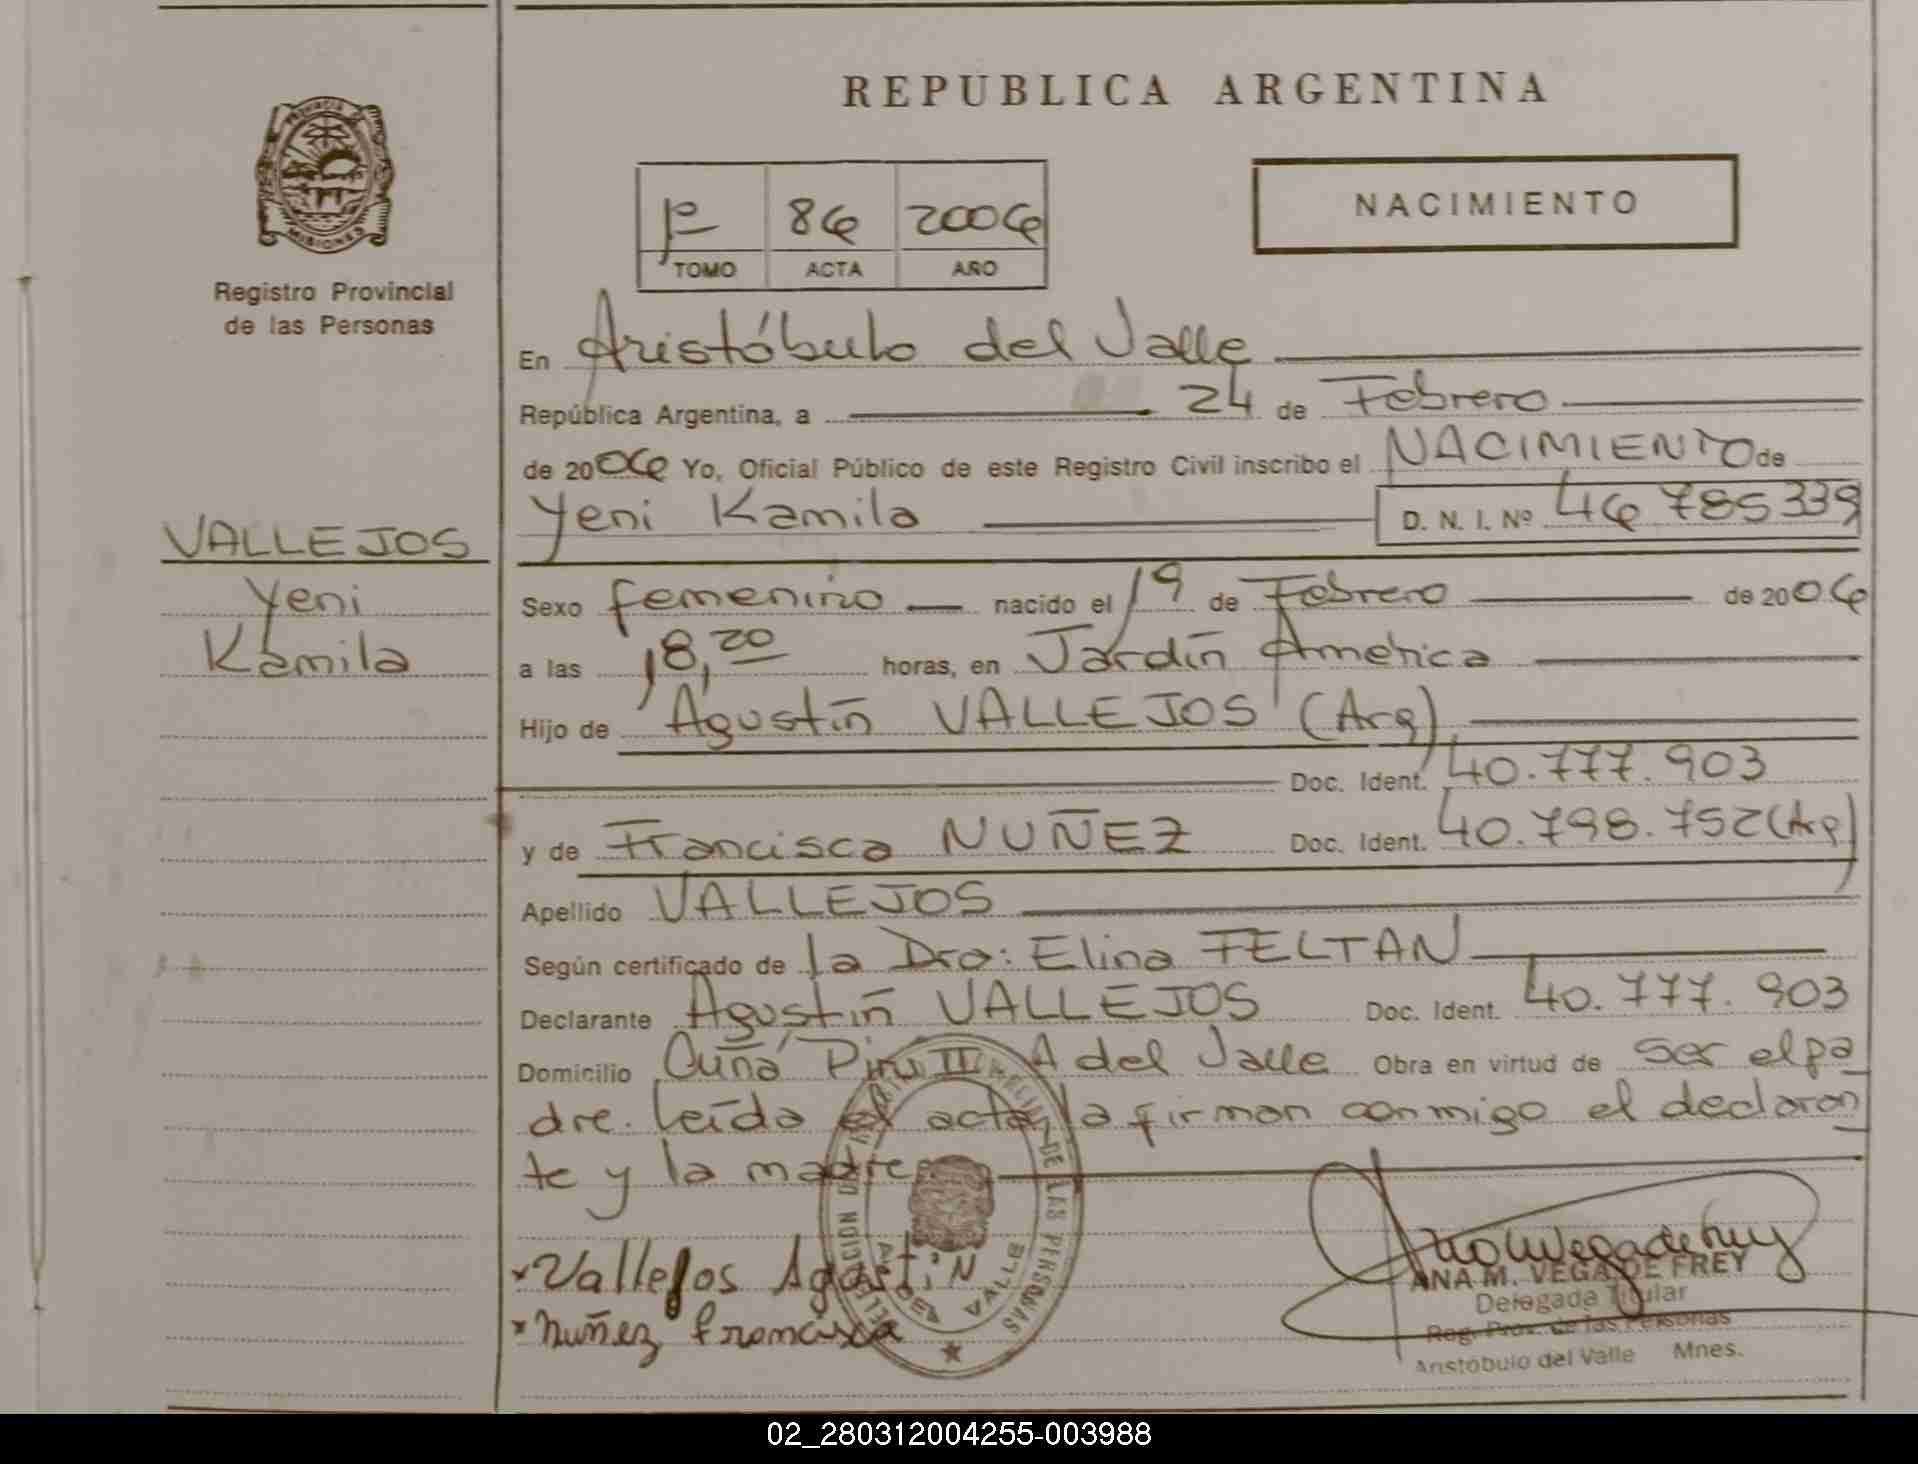 REPUBLICA ARGENTINA
PROVINCIA
MISIONES
Registro Provincial
de las Personas
86 2006
TOMO ACTA AÑO
NACIMIENTO
En Aristóbulo del Valle
República Argentina, a 24 de Febrero
de 2006 Yo, Oficial Público de este Registro Civil inscribo el NACIMIENTO de
Yeni Kamila D. N. I. Nº 46 785 339
VALLEJOS
Yeni
Kamila
Sexo femenino nacido el 19 de Febrero de 2006
a las 18,20 horas, en Jardín América
Hijo de Agustín VALLEJOS (Arg)
Doc. Ident. 40.777.903
y de Francisca NUÑEZ Doc. Ident. 40.798.752 (Arg)
Apellido VALLEJOS
Según certificado de la Dra: Elina FELTAN
Declarante Agustín VALLEJOS Doc. Ident. 40.777.903
Domicilio Cuña Pirú II A del Valle Obra en virtud de ser el pa
dre. leída el acta la firman conmigo el declaran
te y la madre
Vallejos Agostin
Nuñez francisca
DE LAS PERSONAS
VALLE
ANA M. VEGA DE FREY
Delegada Titular
Reg. Prov. de las Personas
Aristóbulo del Valle Mnes.
02_280312004255-003988